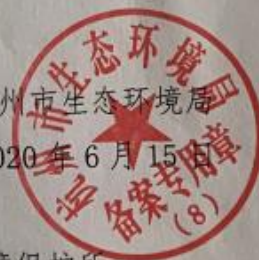 州市生态环境局
2020年6月15日
州市生态环境局
备案专用章
(8)